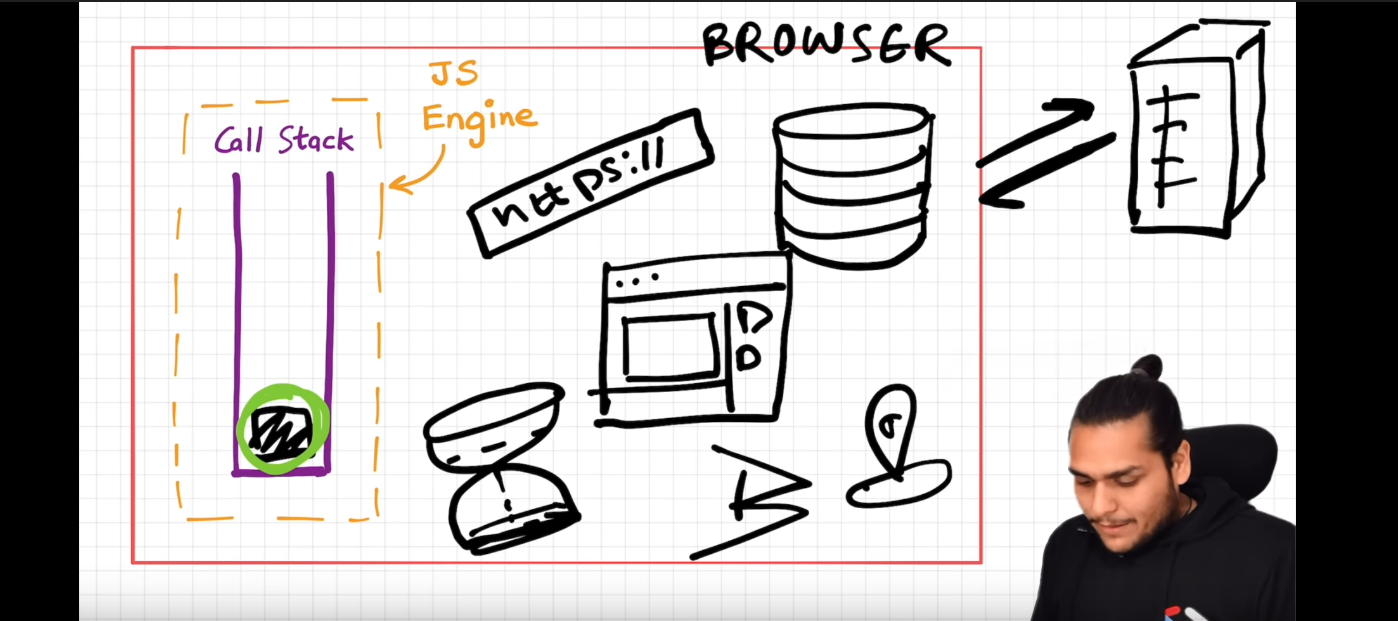 BROWSER
JS
Engine
Call Stack
https://
D
D